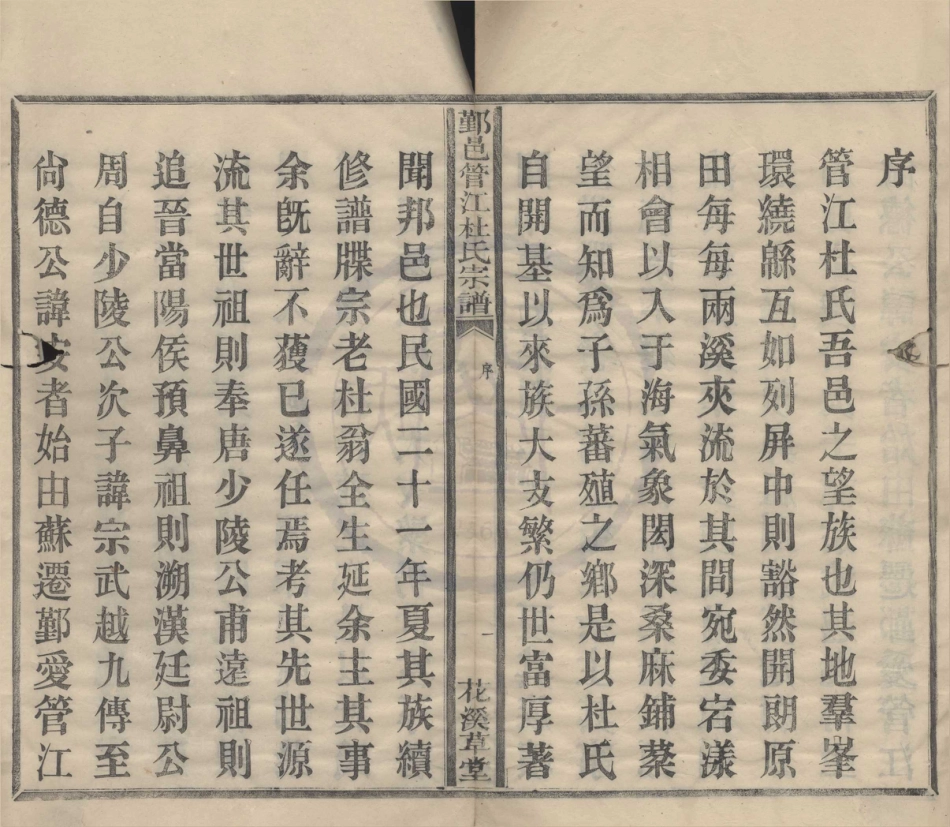 序
管江杜氏吾邑之望族也其地羣峯
環繞緜互如列屏中則豁然開朗原
田每每兩溪夾流於其間宛委宕漾
相會以入于海氣象閎深桑麻鋪棻
望而知爲子孫蕃殖之鄉是以杜氏
自開基以來族大支繁仍世富厚著
鄞邑管江杜氏宗譜
序
一
花溪草堂
聞邦邑也民國二十一年夏其族續
修譜牒宗老杜翁全生延余主其事
余旣辭不蒦已遂任焉考其先世源
流其世祖則奉唐少陵公甫遠祖則
追晉當陽侯預鼻祖則溯漢廷尉公
周自少陵公次子諱宗武越九傳至
尙德公諱者始由蘇遷鄞愛管江